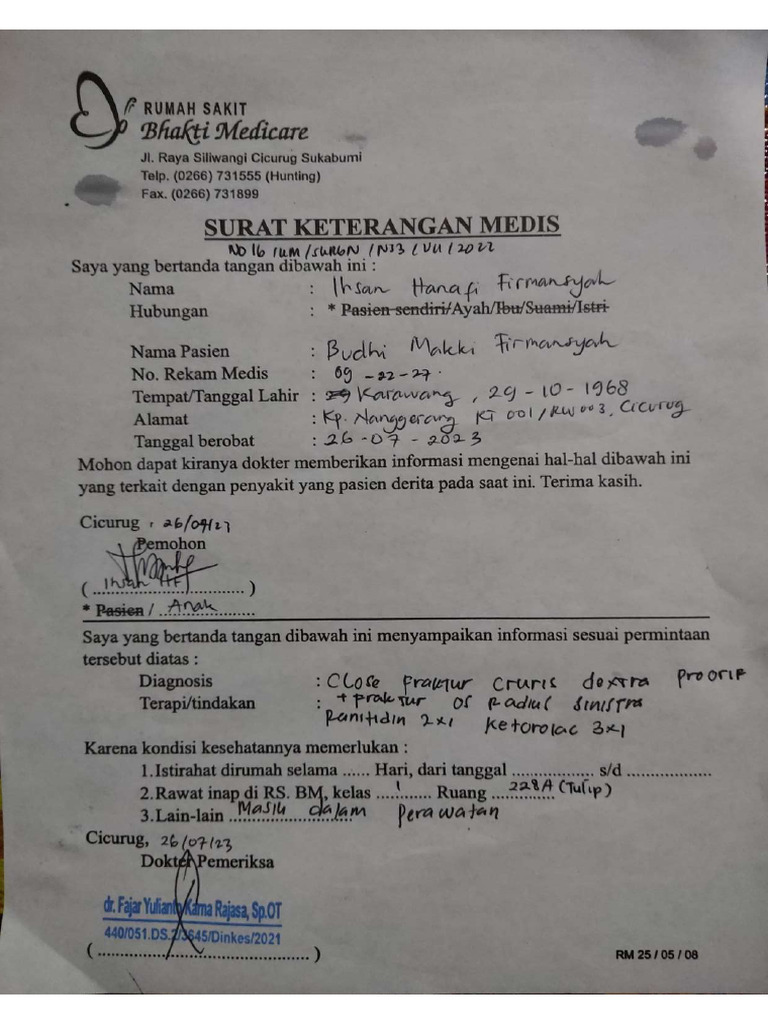 RUMAH SAKIT
Bhakti Medicare
Jl. Raya Siliwangi Cicurug Sukabumi
Telp. (0266) 731555 (Hunting)
Fax. (0266) 731899
SURAT KETERANGAN MEDIS
No 16 /UM/SURGN / NS3 / VII / 2022
Saya yang bertanda tangan dibawah ini :
Nama : Ihsan Hanafi Firmansyah
Hubungan : * Pasien sendiri/Ayah/Ibu/Suami/Istri
Nama Pasien : Budhi Makki Firmansyah
No. Rekam Medis : 09 -22-27.
Tempat/Tanggal Lahir : Karawang, 29-10-1968
Alamat : Kp. Nanggerang RT 001/RW 003, Cicurug
Tanggal berobat : 26-07-2023
Mohon dapat kiranya dokter memberikan informasi mengenai hal-hal dibawah ini
yang terkait dengan penyakit yang pasien derita pada saat ini. Terima kasih.
Cicurug, 26/07/23
Pemohon
( Ihsan HF )
* Pasien / Anak
Saya yang bertanda tangan dibawah ini menyampaikan informasi sesuai permintaan
tersebut diatas :
Diagnosis : Close fraktur cruris dextra pro orif
Terapi/tindakan : + fraktur os radius sinistra
Ranitidin 2x1 Ketorolac 3x1
Karena kondisi kesehatannya memerlukan :
1.Istirahat dirumah selama ...... Hari, dari tanggal ............... s/d ...............
2.Rawat inap di RS. BM, kelas 1 Ruang 228A (Tulip)
3.Lain-lain Masih dalam perawatan
Cicurug, 26/07/23
Dokter Pemeriksa
dr. Fajar Yulianto Karna Rajasa, Sp.OT
440/051.DS.2/3645/Dinkes/2021
(.......................................)
RM 25 / 05 / 08